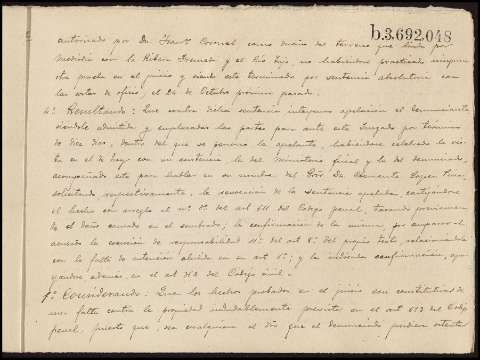 b.3.692.048
autorizado por Dn. Franco Coronel como dueño del terreno que linda por
Mediodia con la Ribera y el Rio Tajo, no habiendose practicado ninguna
otra prueba en el juicio y siendo este terminado por sentencia absolutoria con
las costas de oficio, el 24 de Octubre proximo pasado.
4º Resultando: Que contra dicha sentencia interpuso apelacion el Denunciante
siendole admitida y emplazadas las partes para ante este Juzgado por término
de diez dias, dentro del que se personó la apelante, habiendose celebrado la vis-
ta en el de hoy con su asistencia, la del Ministerio fiscal y la del denunciado,
acompañado este para hablar en su nombre del Dn. Clemente
solicitando respectivamente, la revocacion de la sentencia apelada, castigandose
el hecho con arreglo al nº 3º del art 611 del Codigo penal,
el daño causado en el sembrado; la confirmacion de la misma, por amparar al
acusado la exencion de responsabilidad 11ª del art 8º del propio texto, relacionandola
con la falta de intencion aludida en su art 1º; y la indicada confirmacion, apo-
yandose, además, en el art 388 del Codigo Civil.
1º Considerando: Que los hechos probados en el juicio son constitutivos de
una falta contra la propiedad indudablemente prevista en el art 613 del Codigo
penal, puesto que, sea cualquiera el dia que el denunciado